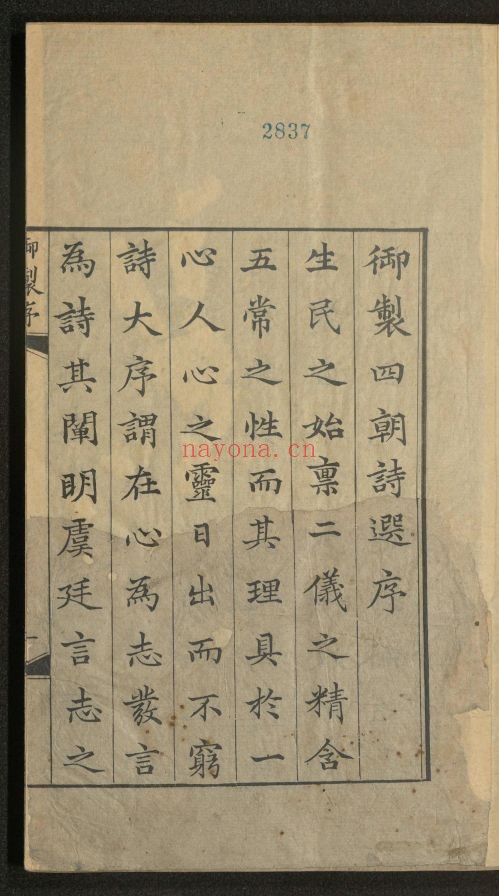 2837
御製四朝詩選序
生民之始禀二儀之精含
五常之性而其理具於一
心人心之靈日出而不窮
詩大序謂在心為志發言
為詩其闡明虞廷言志之
御製序
一
nayona.cn